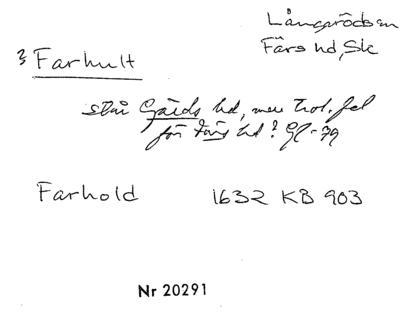 Långaröds sn
Färs hd, Sk
? Farhult
står Gärds hd, men trol. fel
för Färs hd? GE-79
Farhold 1632 KB 903
Nr 20291